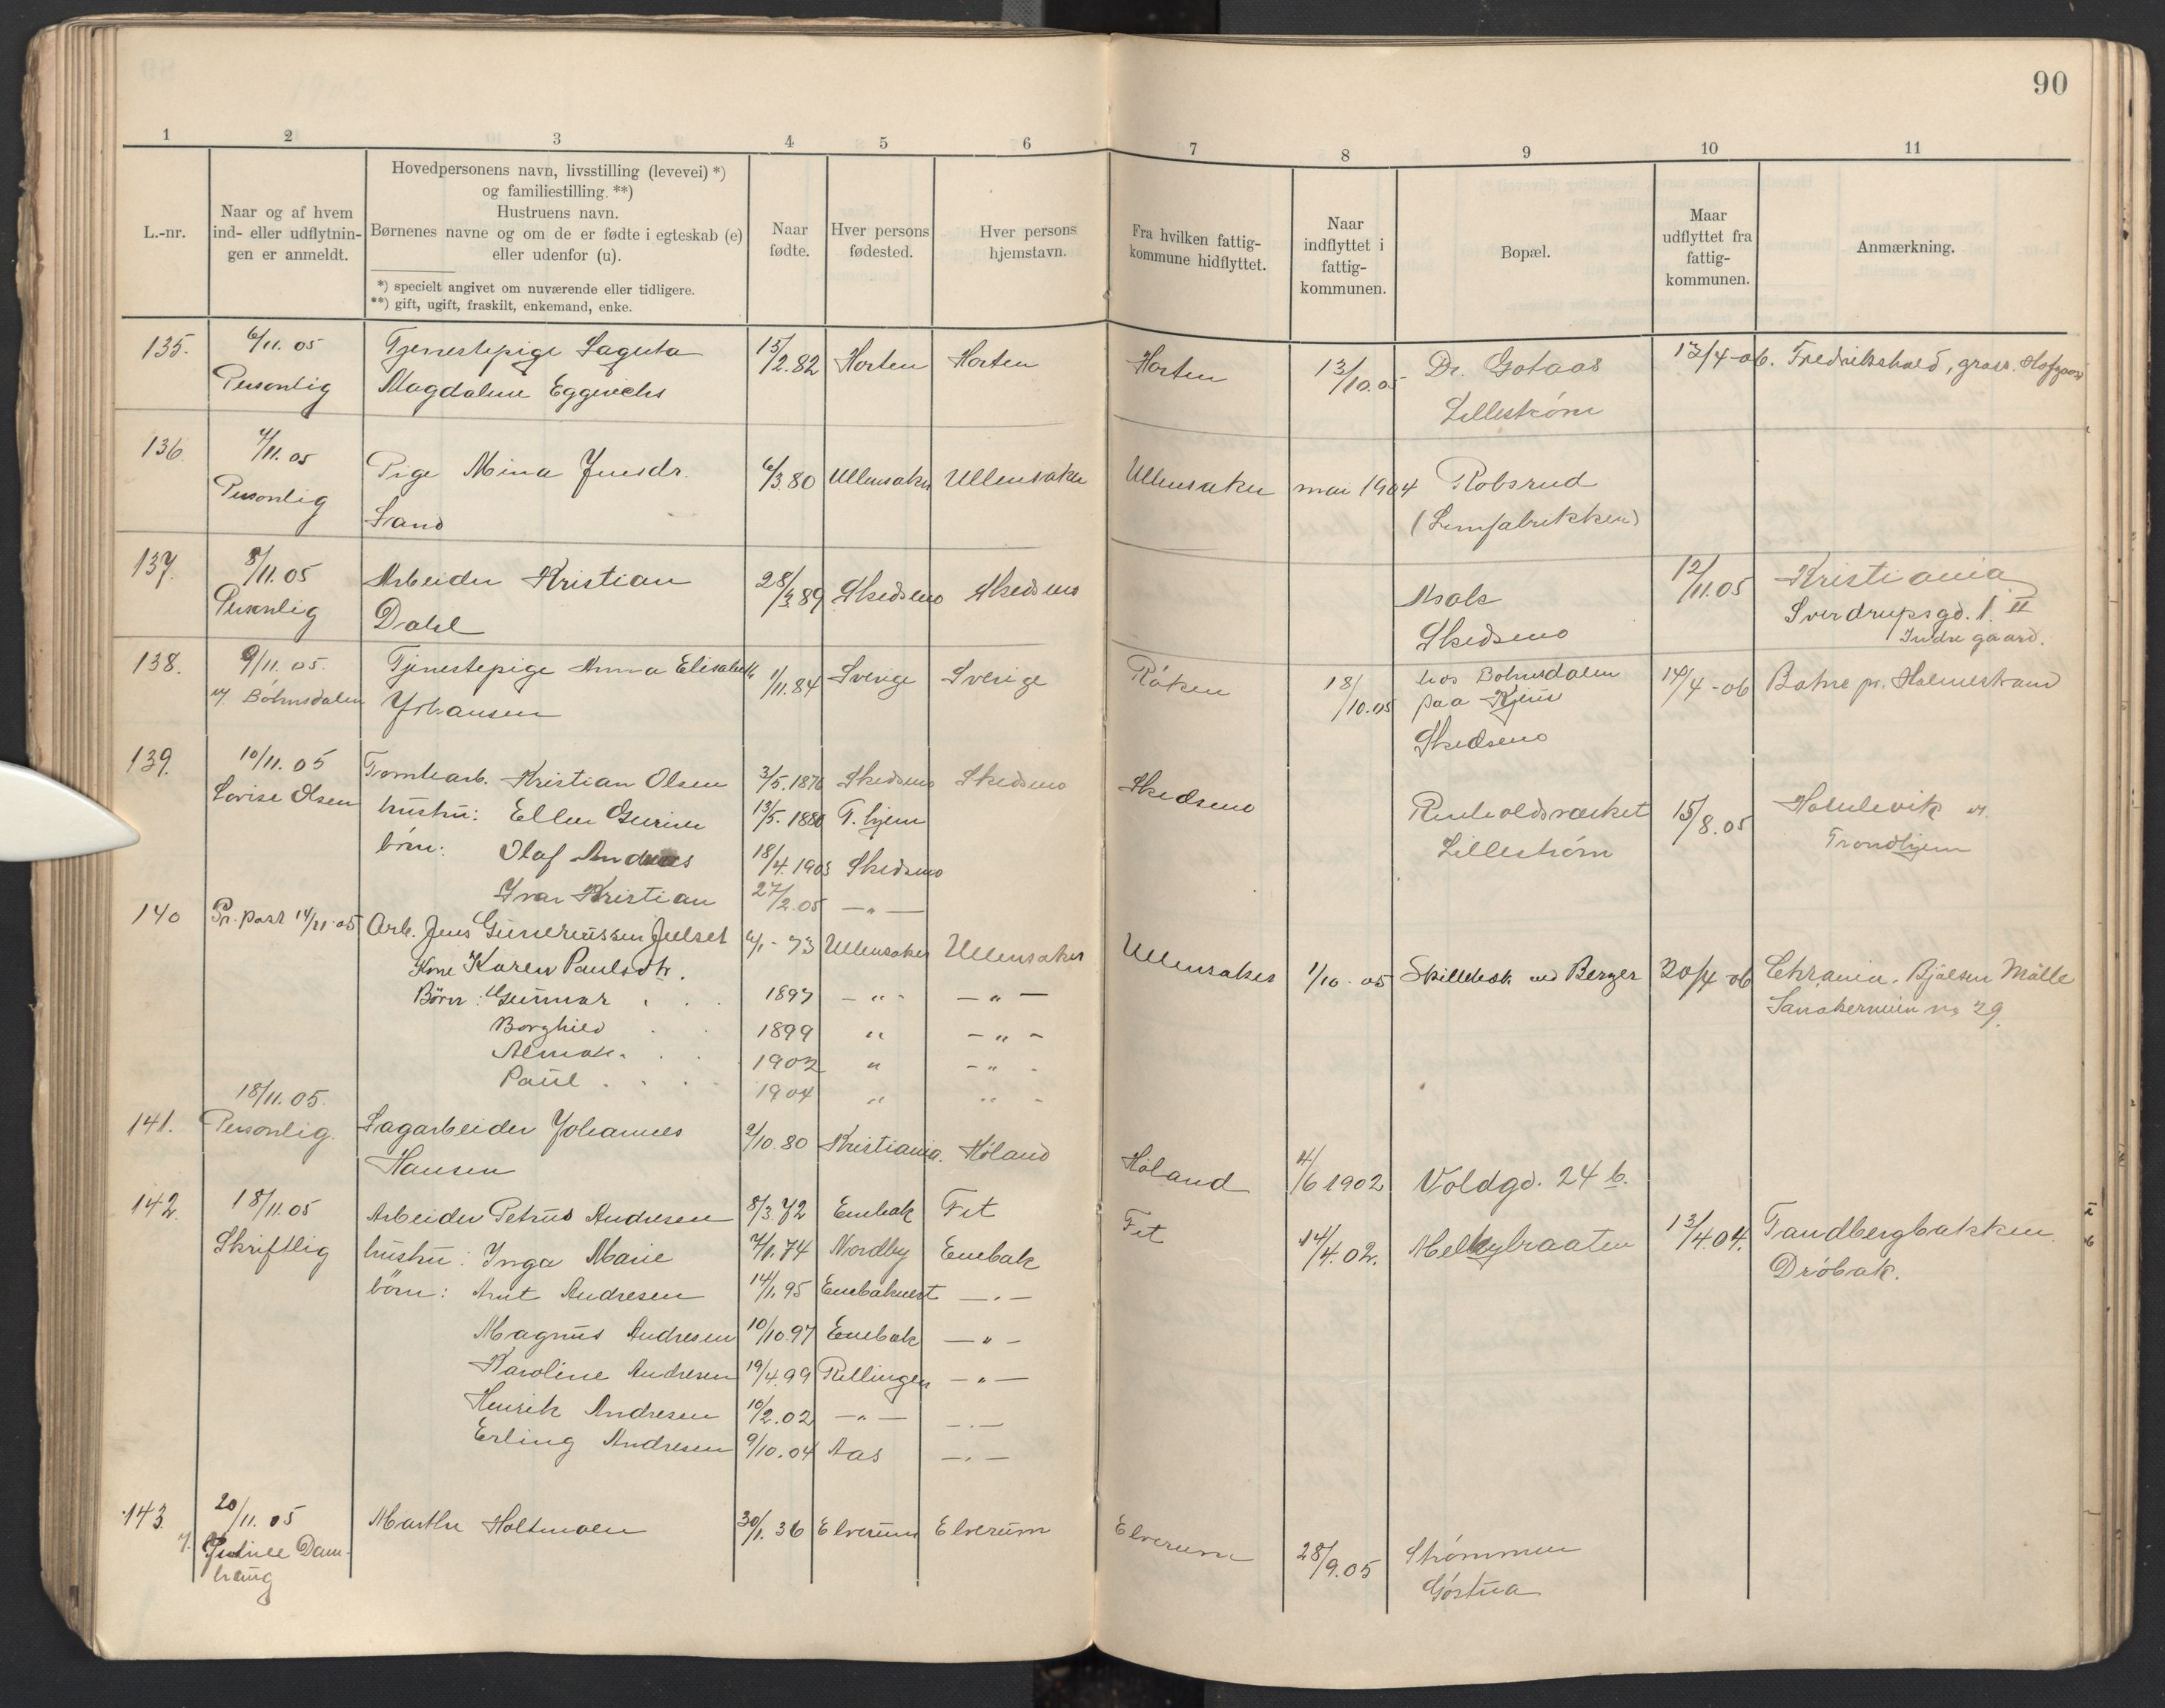 90
1 2 3 4 5 6 7 8 9 10 11
L.-nr.
Naar og af hvem
ind- eller udflytnin-
gen er anmeldt.
Hovedpersonens navn, livsstilling (levevei) *)
og familiestilling. **)
Hustruens navn.
Børnenes navne og om de er fødte i egteskab (e)
eller udenfor (u).
*) specielt angivet om nuværende eller tidligere.
**) gift, ugift, fraskilt, enkemand, enke.
Naar
fødte.
Hver persons
fødested.
Hver persons
hjemstavn.
Fra hvilken fattig-
kommune hidflyttet.
Naar
indflyttet i
fattig-
kommunen.
Bopæl.
Maar
udflyttet fra
fattig-
kommunen.
Anmærkning.
135. 6/11. 05 Tjenestepige Laguta 15/2.82 Horten Horten Horten 13/10.05 Dr. Gotaas 13/4-06. Fredrikshald,
Personlig Magdalene Lillestrøm
136. 4/11. 05 Pige Mina Jensdr. 6/3.80 Ullensaker Ullensaker Ullensaker mai 1904 Robsrud
Personlig Sand (Limfabrikken)
137. 8/11.05 Arbeider Kristian 28/3.89 Skedsmo Skedsmo Asak 12/11.05 Kristiania
Personlig Dahl Skedsmo Sverdrupsgd. 1. II
Indre gaard.
138. 9/11.05. Tjenestepige Anna Elisabeth 1/11.84 Sverige Sverige Røken 18/10.05 hos Bøhnsdalen 14/4-06 Botne pr. Holmestrand
v. Bøhnsdalen Johansen paa Kjeus
Skedsmo
139. 10/11.05 Tomtearb. Kristian Olsen 3/5.1876 Skedsmo Skedsmo Skedsmo Reinholdsverket 15/8.05 Hommelvik v.
Lovise Olsen hustru: Ellen Gurine 13/5.1880 T.hjem Lillestrøm Trondhjem
børn: Olaf Andreas 18/4.1903 Skedsmo
Ivar Kristian 27/2.05 — „ —
140 Pr. post 14/11-05 Arb. Jens Guneriussen Julset 6/1-73 Ullensaker Ullensaker Ullensaker 1/10-05 ved Berger 20/4-06 Chrania. Bjølsen Mølle
Kone Karen Paulsdtr. Sandakerveien no 29.
Børn: Gunnar 1897 — „ — — „ —
Borghild 1899 „ — „ —
1902 „ — „ —
Paul 1904 „ „
18/11.05.
141. Personlig. Sagarbeider Johannes 2/10.80 Kristiania. Høland Høland 4/6 1902 Voldgd. 24 b.
Hansen
142. 18/11.05 Arbeider Petrus Andresen 8/3.72 Enebak Fet Fet 14/4.02. Melkybraaten 13/4.04. Tandbergbakken
Skriftlig hustru: Inga Marie 7/1.74 Nordby Enebak Drøbak.
børn: Arnt Andresen 14/1.95 Enebakvest — „ —
Magnus Andresen 10/10.97 Enebak — „ —
Karoline Andresen 19/4.99 Rellingen — „ —
Henrik Andresen 10/2.02 — „ — — „ —
Erling Andresen 9/10.04 Aas — „ —
143. 20/11.05 Marthe Holtmoen 30/1.36 Elverum Elverum Elverum 28/9.05 Strømmen
Gøstua